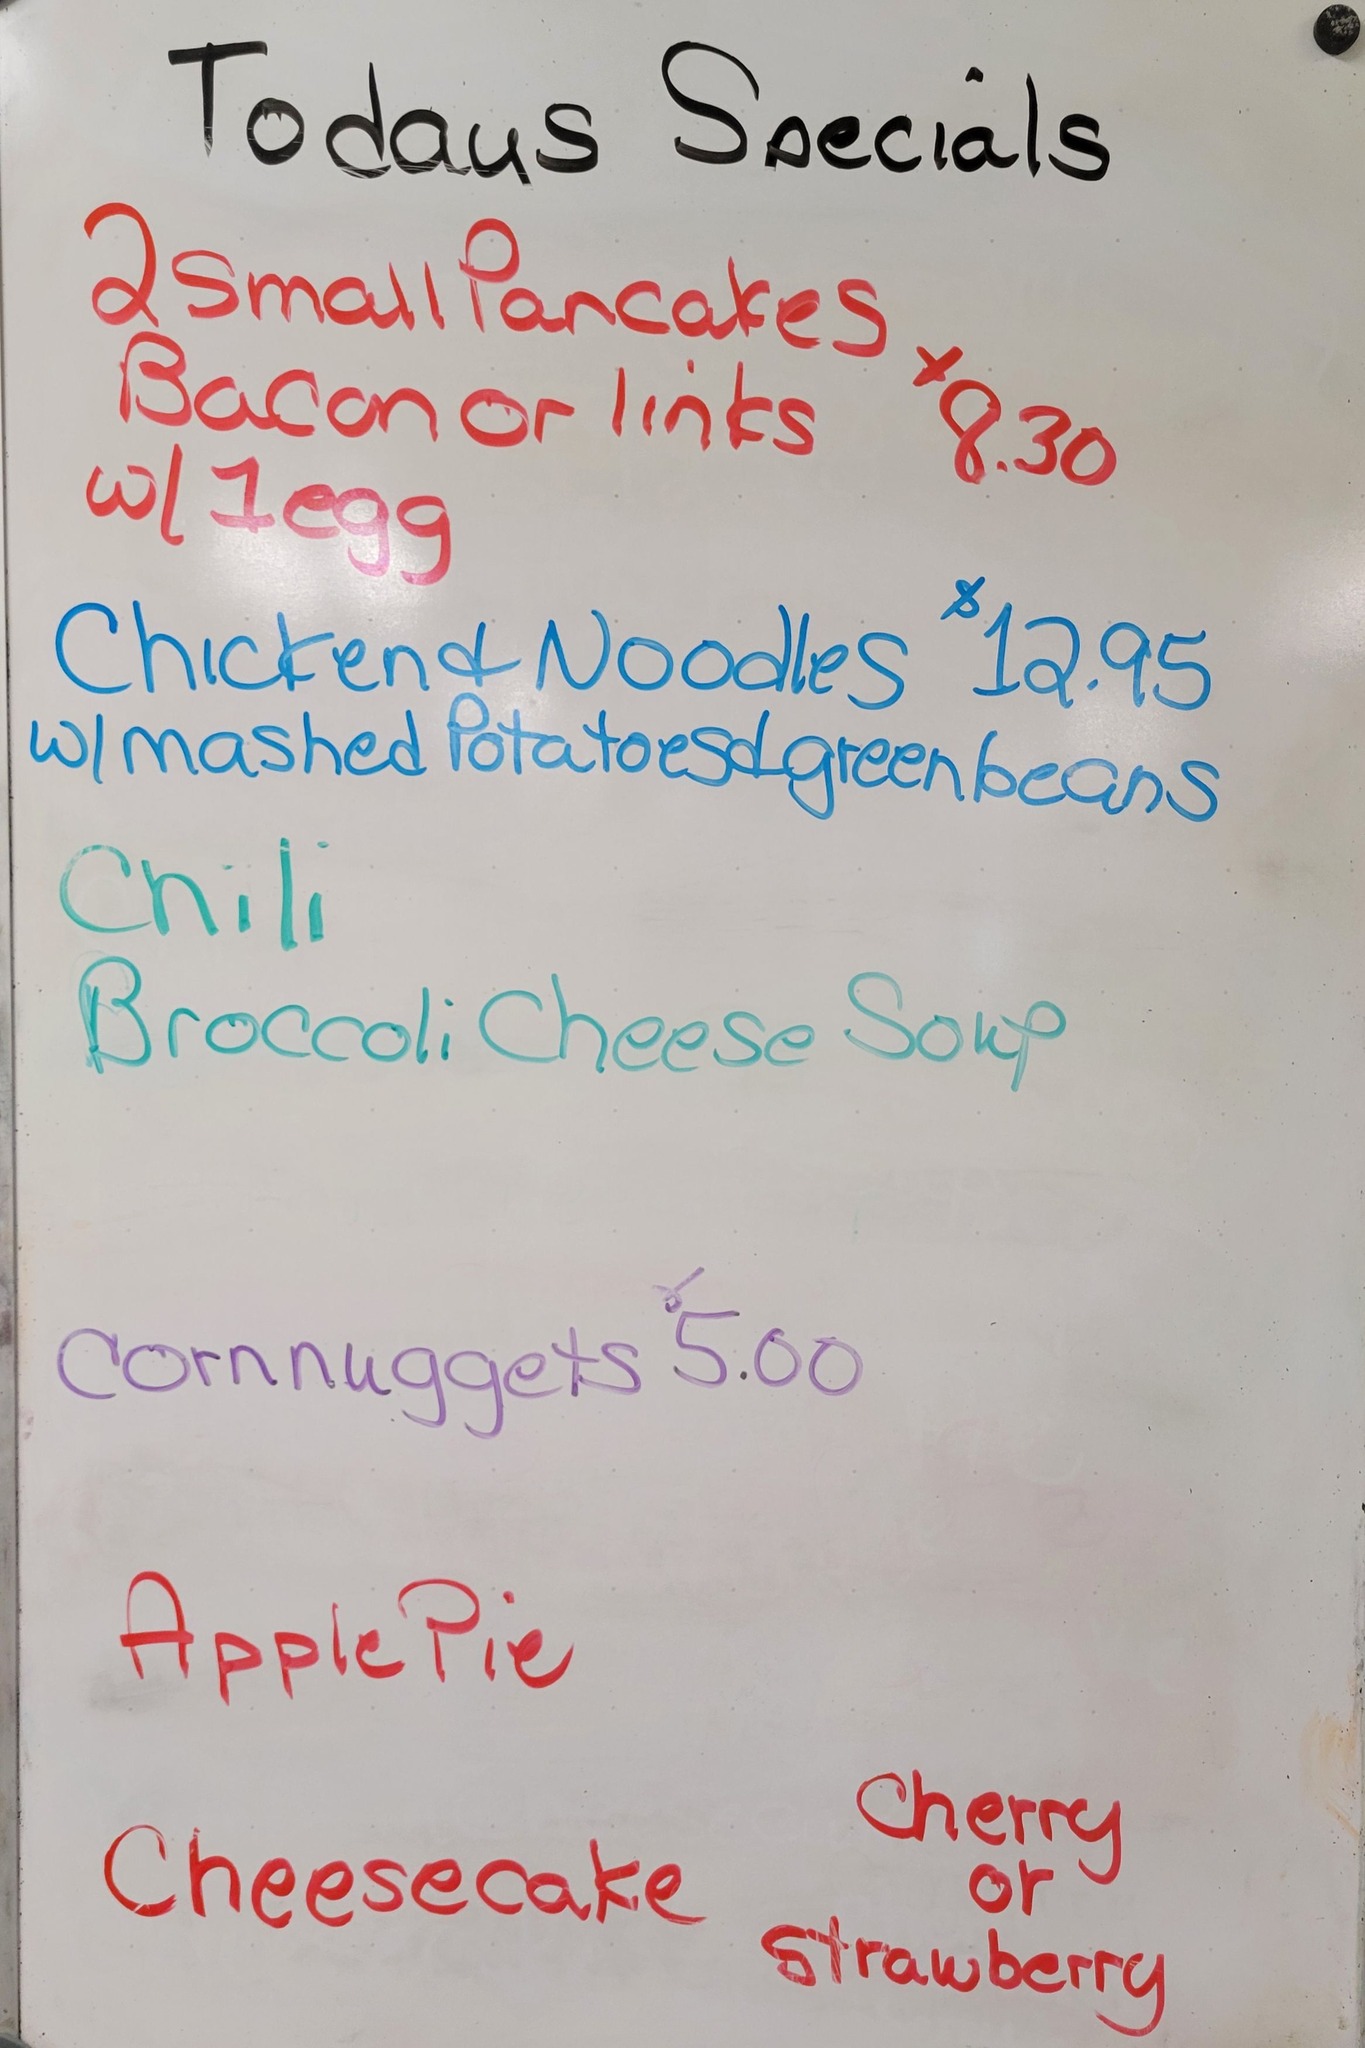 Todays Specials
2 Small Pancakes
Bacon or links $8.30
w/ 1 egg
Chicken & Noodles $12.95
w/ mashed Potatoes & green beans
Chili
Broccoli Cheese Soup
Corn nuggets $5.00
Apple Pie
Cheesecake Cherry
or
strawberry